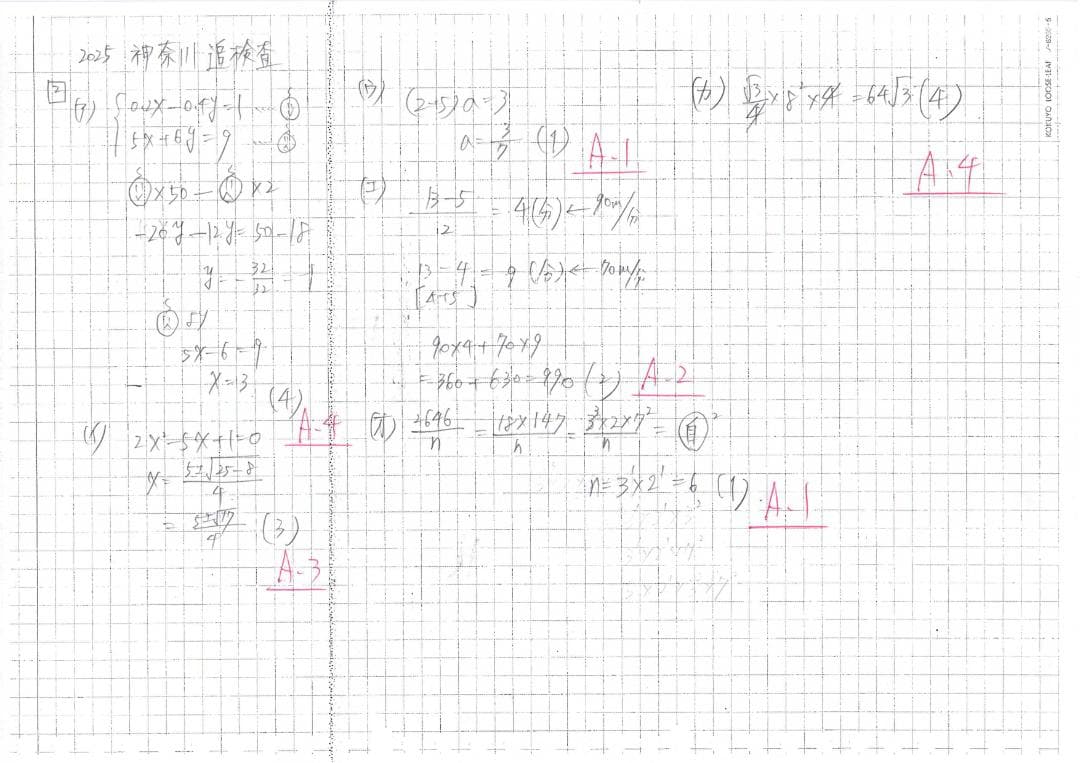 2025 神奈川 追検査
2
(ア) 0.2x-0.4y=1 …
5x+6y=9 …
×50 - ×2
-20y-12y=50-18
y=-32/32=-1
より
5x-6=9
x=3
(4)
A.4
(イ) 2x²-5x+1=0
x=5±√25-8/4
=5±√17/4 (3)
A.3
(ウ) (2+5)a=3
a=3/7 (1)
A.1
(エ) 13-5/2=4(分)←90m/分
13-4=9(分)←70m/分
[4+5]
90×4+70×9
=360+630=990 (2) A.2
(オ) 2646/n=18×147/n=3³×2×7²/n=自²
n=3¹×2¹=6 (1)
A.1
(カ) √3/4×8²×4=64√3 (4)
A.4
KOKUYO LOOSE-LEAF